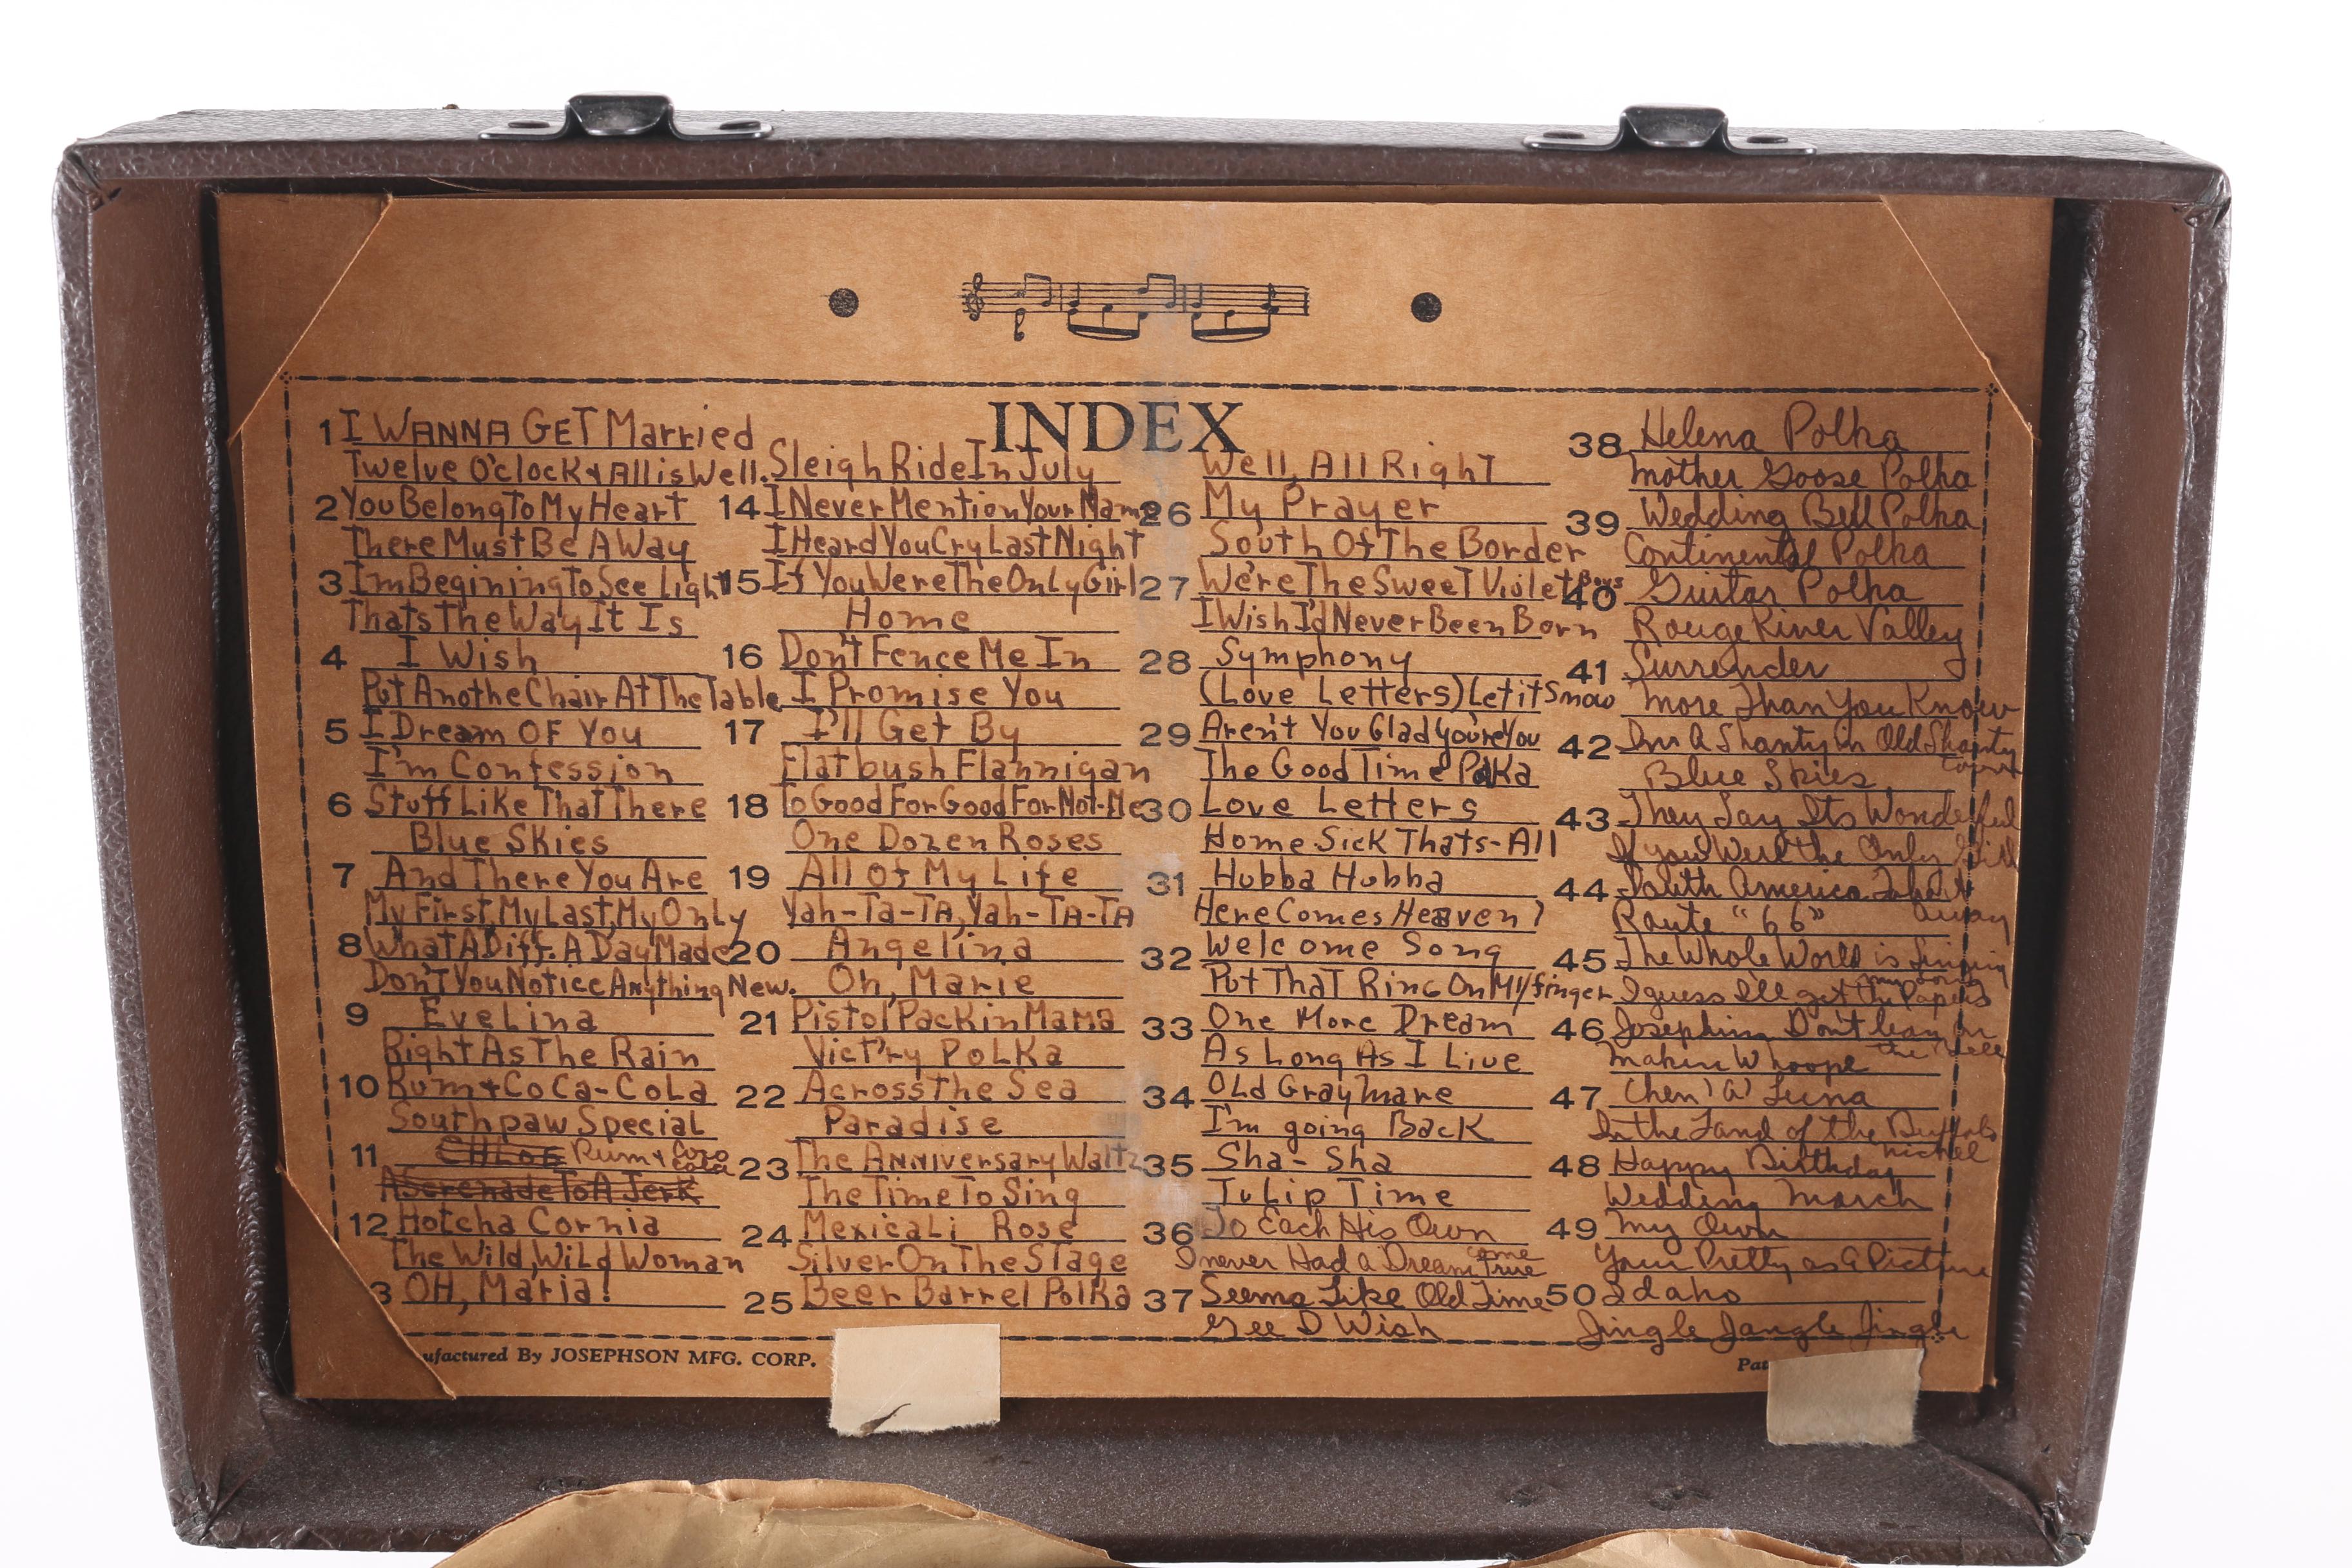 INDEX
1 I WANNA GET Married
Twelve O'clock & All is Well.
2 You Belong To My Heart
There Must Be A Way
3 Im Begining To See Light
Thats The Way It Is
4 I Wish
Put Anothe Chair At The Table
5 I Dream OF You
I'm Confession
6 Stuff Like That There
Blue Skies
7 And There You Are
My First, My Last, My Only
8 What A Diff. A Day Made
Don't You Notice Anything New.
9 Evelina
Right As The Rain
10 Rum & CoCa-CoLa
Southpaw Special
11 CHLOE Rum & Coco Cola
A Serenade To A Jerk
12 Hotcha Cornia
The Wild, Wild Woman
3 OH, Maria!
Sleigh Ride In July
14 I Never Mention Your Name
I Heard You Cry Last Night
15 If You Were The Only Girl
Home
16 Don't Fence Me In
I Promise You
17 I'll Get By
Flatbush Flannigan
18 To Good For Good For Not-Me
One Dozen Roses
19 All Of My Life
Yah-Ta-TA, Yah-TA-TA
20 Angelina
Oh, Marie
21 Pistol Packin Mama
Vict'ry PoLKa
22 Across the Sea
Paradise
23 The Anniversary Waltz
The Time To Sing
24 MexicaLi Rose
Silver On The Stage
25 Beer Barrel Polka
Well, All Right
26 My Prayer
South Of The Border
27 We're The Sweet Violet Boys
I Wish I'd Never Been Born
28 Symphony
(Love Letters) Let it Snow
29 Aren't You Glad You're You
The Good Time Polka
30 Love Letters
Home Sick Thats-All
31 Hubba Hubba
Here Comes Heaven?
32 Welcome Song
Put That Ring On My finger
33 One More Dream
As Long As I Live
34 Old Gray Mare
I'm going Back
35 Sha-Sha
TuLip Time
36 To Each His Own
I never Had a Dream Come True
37 Seems Like Old Time
Gee I Wish
38 Helena Polka
Mother Goose Polka
39 Wedding Bell Polka
Continental Polka
40 Guitar Polka
Rouge River Valley
41 Surrender
More Than You Know
42 In A Shanty in Old Shanty town
Blue Skies
43 They Say Its Wonderful
If you Were the Only Girl
44 South America Take It Away
Route "66"
45 The Whole World is Singing my song
I guess I'll get the Papers
46 Josephine Don't lean on the Bell
Makin Whoope
47 Chen' a' Luna
In the Land of the Buffalo nickel
48 Happy Birthday
Wedding March
49 My Own
Your Pretty as a Picture
50 Idaho
Jingle Jangle Jingle
ufactured By JOSEPHSON MFG. CORP.
Pat